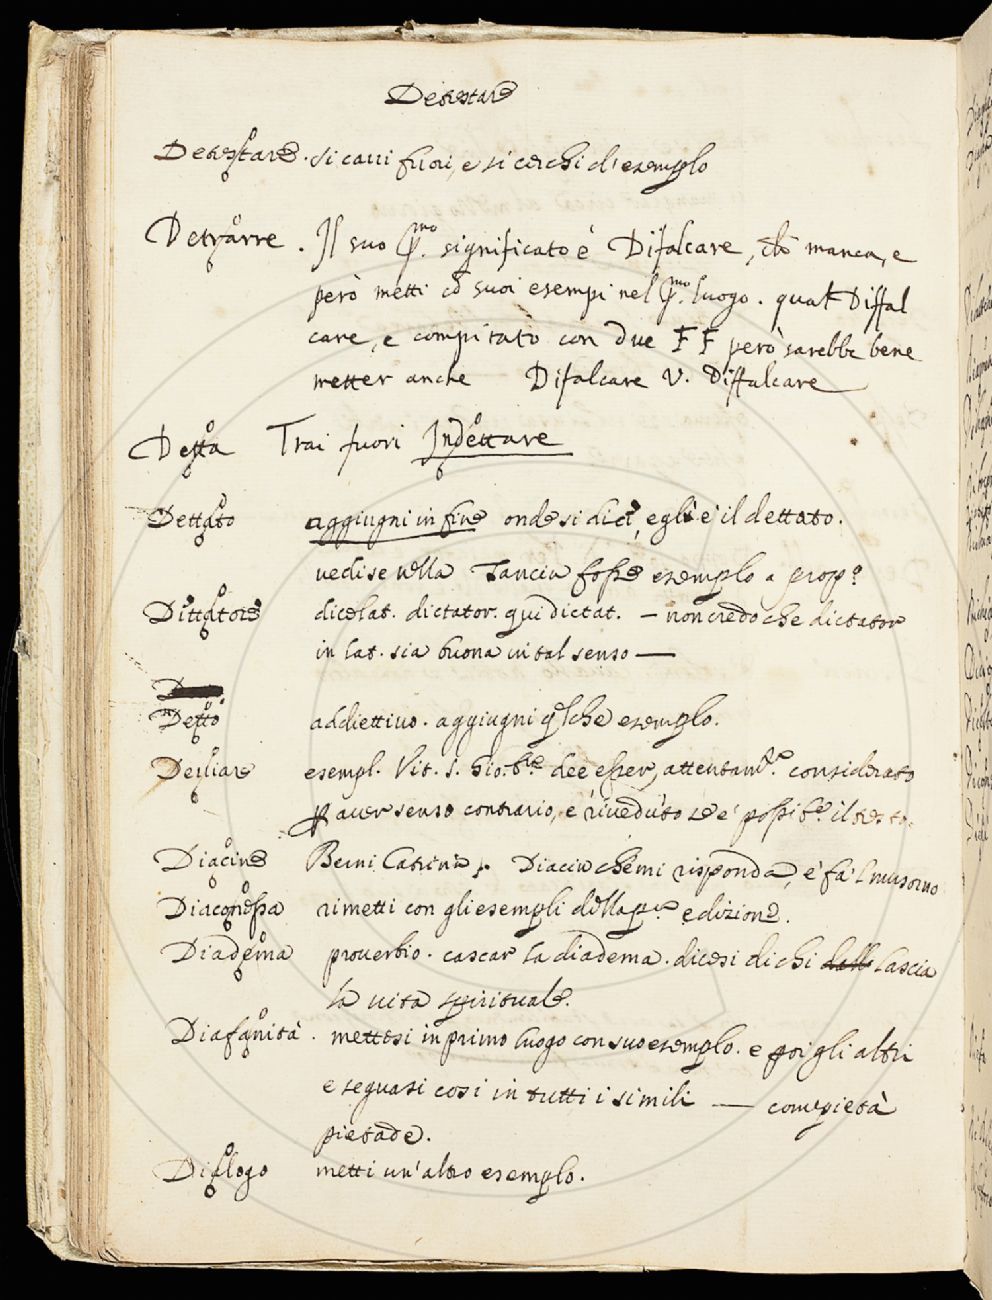 Detestare
Detestare. si cavi fuori, e si cerchi d'esempio
Detrarre. Il suo p.mo significato è Difalcare, che manca, e
però metti co suoi esempi nel p.mo luogo. qual Diffal
care, e compitato con due FF però sarebbe bene
metter anche Difalcare V. Diffalcare
Detta Trai fuori Indettare
Dettato aggiugni in fine onde si dice, egli è il dettato.
vedi se nella Tancia fosse esempio a prop.o
Dittatore dice lat. dictator. qui dictat. — non credo che dictator
in lat. sia buona in tal senso —
Detto addiettivo. aggiugni qlche esempio.
esempl. Vit. S. Gio: b.te dee esser attentam.te considerato
p aver senso contrario, e riveduto se è possib.e il testo.
Diacine Berni Catrina. Diacin che mi risponda, e fa 'l musorno
Diaconessa rimetti con gli esempli della p.a edizione.
Diadema proverbio. cascar la diadema. dicesi di chi lascia
la vita spirituale.
Diafanità. mettesi in primo luogo con suo esemplo. e poi gli altri
e seguasi così in tutti i simili — come pietà
pietade.
Dialogo metti un'altro esemplo.